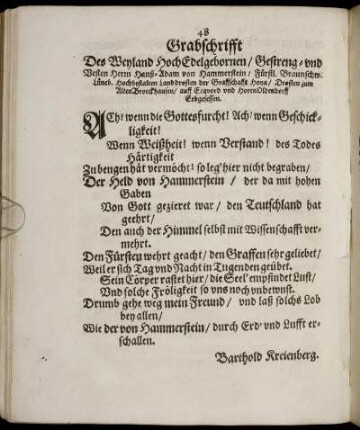 48
Grabschrifft
Des Weyland HochEdelgebornen / Gestreng- und
Vesten Herrn Hanß-Adam von Hammerstein / Fürstl. Braunschw.
Lüneb. Hochbestalten Landdrosten der Graffschafft Hoya / Drosten zum
AltenBrockhausen / auff Eqvord und HornOldendorff
Erbgesessen.
ACh! wenn die Gottesfurcht! Ach! wenn Geschick-
ligkeit!
Wenn Weißheit! wenn Verstand! des Todes
Härtigkeit
Zu bengen hät vermöcht! so leg' hier nicht begraben /
Der Held von Hammerstein / der da mit hohen
Gaben
Von Gott gezieret war / den Teutschland hat
geehrt /
Den auch der Himmel selbst mit Wissenschafft ver-
mehrt.
Den Fürsten wehrt geacht / den Graffen sehr geliebet /
Weil er sich Tag und Nacht in Tugenden geübet.
Sein Cörper rastet hier / die Seel' empfindet Lust /
Und solche Fröligkeit so uns noch unbewust.
Drumb gehe weg mein Freund / und laß solchs Lob
bey allen /
Wie der von Hammerstein / durch Erd' und Lufft er-
schallen.
Barthold Kreienberg.